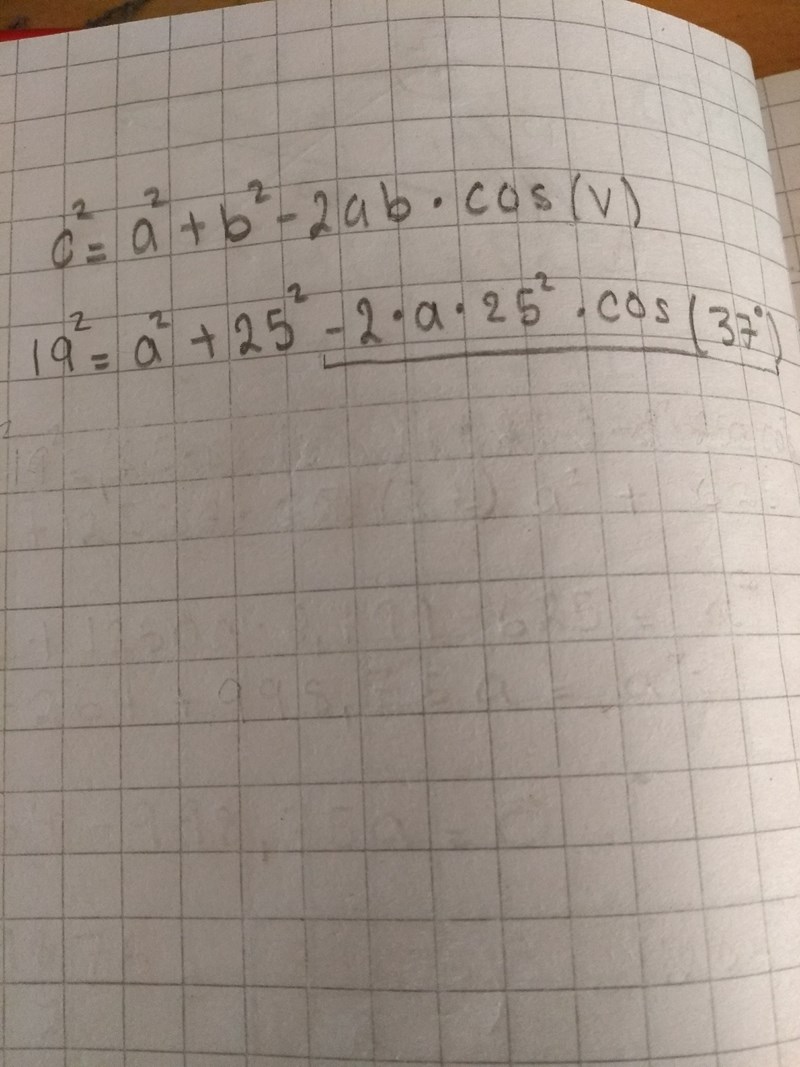 c² = a² + b² - 2ab · cos(v)
19² = a² + 25² - 2 · a · 25² · cos(37°)